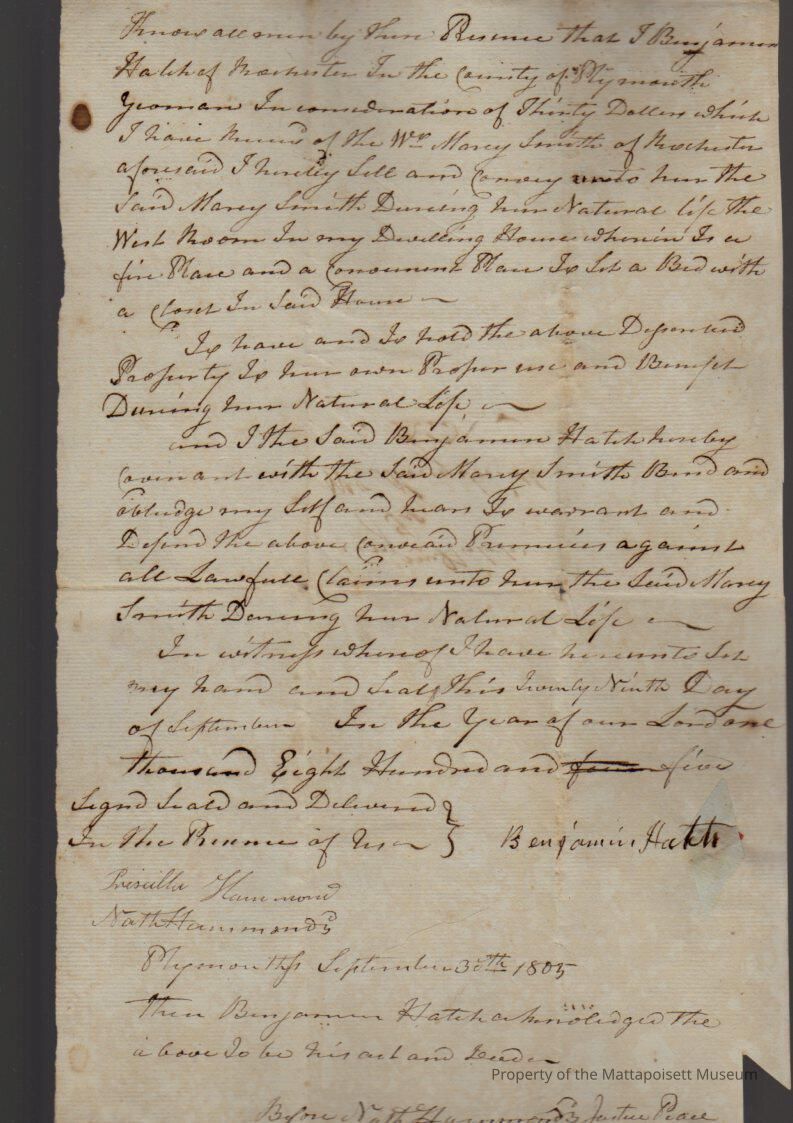 Know all men by these Presence that I Benjamin
Hatch of Rochester In the County of Plymouth
Yeoman In consideration of Thirty Dollers which
I have Receivd of the Wd Marcy Smith of Rochester
aforesaid I hereby Sell and Convey unto her the
Said Marcy Smith During her Natural life the
West Room In my Dwelling House wherein Is a
fire Place and a Convenient Place To Set a Bed with
a Closet In Said House
To have and To hold the above Described
Property To her own Proper use and Benefit
During her Natural Life
and I the Said Benjamin Hatch hereby
Covenant with the Said Marcy Smith Bind and
obledge my Self and hears To warrant and
Defend the above Conveaid Premises against
all Lawfull Claims unto her the Said Marcy
Smith During her Natural Life
In witness whereof I have hereunto Set
my hand and Seal this Twenty Ninth Day
of September In the Year of our Lord one
thousand Eight Hundred and four five
Signd Seald and Delivered }
In the Presence of Us } Benjamin Hatch
Priscilla Hammond
Nath Hammond 3d
Plymouth ss September 30th 1805
then Benjamin Hatch acknoledged the
above To be his act and Deed
Property of the Mattapoisett Museum
Before Nath Hammond 3d Justice Peace